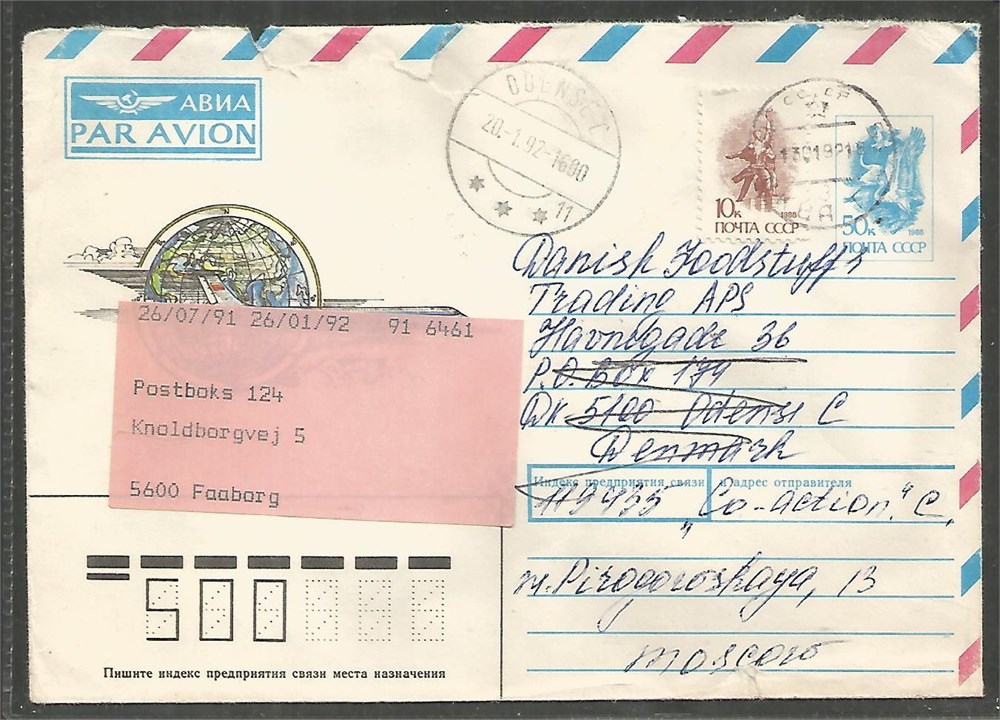 АВИА
PAR AVION
ODENSE C
20.-1.92-1600
11
10к
1988
ПОЧТА СССР
50к
1988
ПОЧТА СССР
Danish Foodstuffs
Trading APS
Havnegade 36
P.O.Box 179
DK 5100 Odense C
Denmark
26/07/91 26/01/92 91 6461
Postboks 124
Knoldborgvej 5
5600 Faaborg
Индекс предприятия связи и адрес отправителя
119435 "Co-action" C.
m.Pirogovskaya, 13
Moscow
500
Пишите индекс предприятия связи места назначения